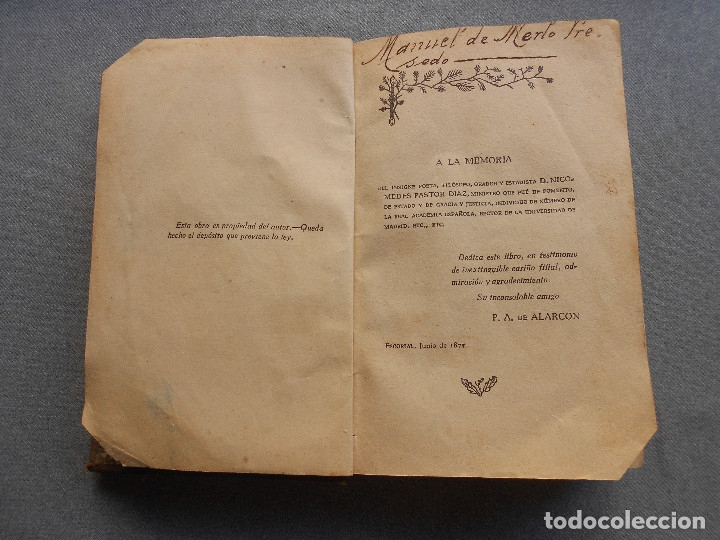 Esta obra es propiedad del autor.—Queda
hecho el depósito que previene la ley.
Manuel de Merlo Tre-
sedo
A LA MEMORIA
DEL INSIGNE POETA, FILÓSOFO, ORADOR Y ESTADISTA D. NICO-
MEDES PASTOR DIAZ, MINISTRO QUE FUÉ DE FOMENTO,
DE ESTADO Y DE GRACIA Y JUSTICIA, INDIVIDUO DE NÚMERO DE
LA REAL ACADEMIA ESPAÑOLA, RECTOR DE LA UNIVERSIDAD DE
MADRID, ETC., ETC.
Dedica este libro, en testimonio
de inextinguible cariño filial, ad-
miración y agradecimiento
Su inconsolable amigo
P. A. DE ALARCON
ESCORIAL, Junio de 1875.
todocoleccion
todocoleccion.net